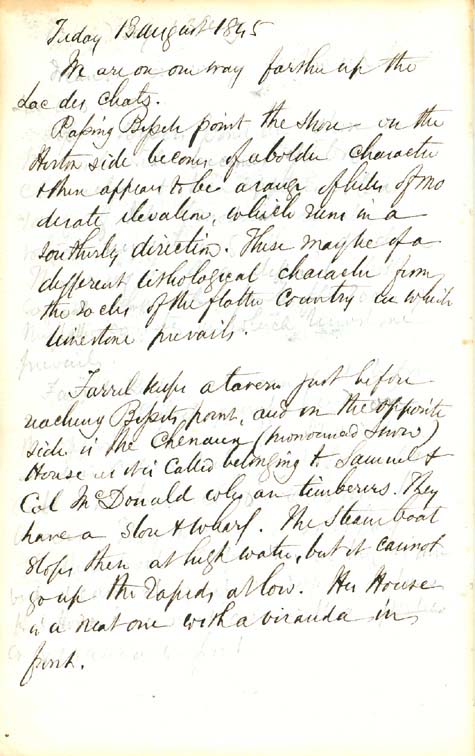 Friday 13 august 1845
We are on our way farther up the
Lac des Chats.
Passing Bissels point the shore on the
Horton side becomes of a bolder character
& then appears to be a range of hills of mo
derate elevation, which runs in a
southerly direction. These may be of a
different lithological character from
the rocks of the flatter country in which
limestone prevails.
Farrel keeps a tavern just before
reaching Bissels point, and on the opposite
side is the Chenaux (pronounced Snow)
House as it is called belonging to Samuel &
Col McDonald who are timberers. They
have a store & wharf. The Steam boat
stops there at high water, but it cannot
go up the rapids at low. His House
is a neat one with a viranda in
front.